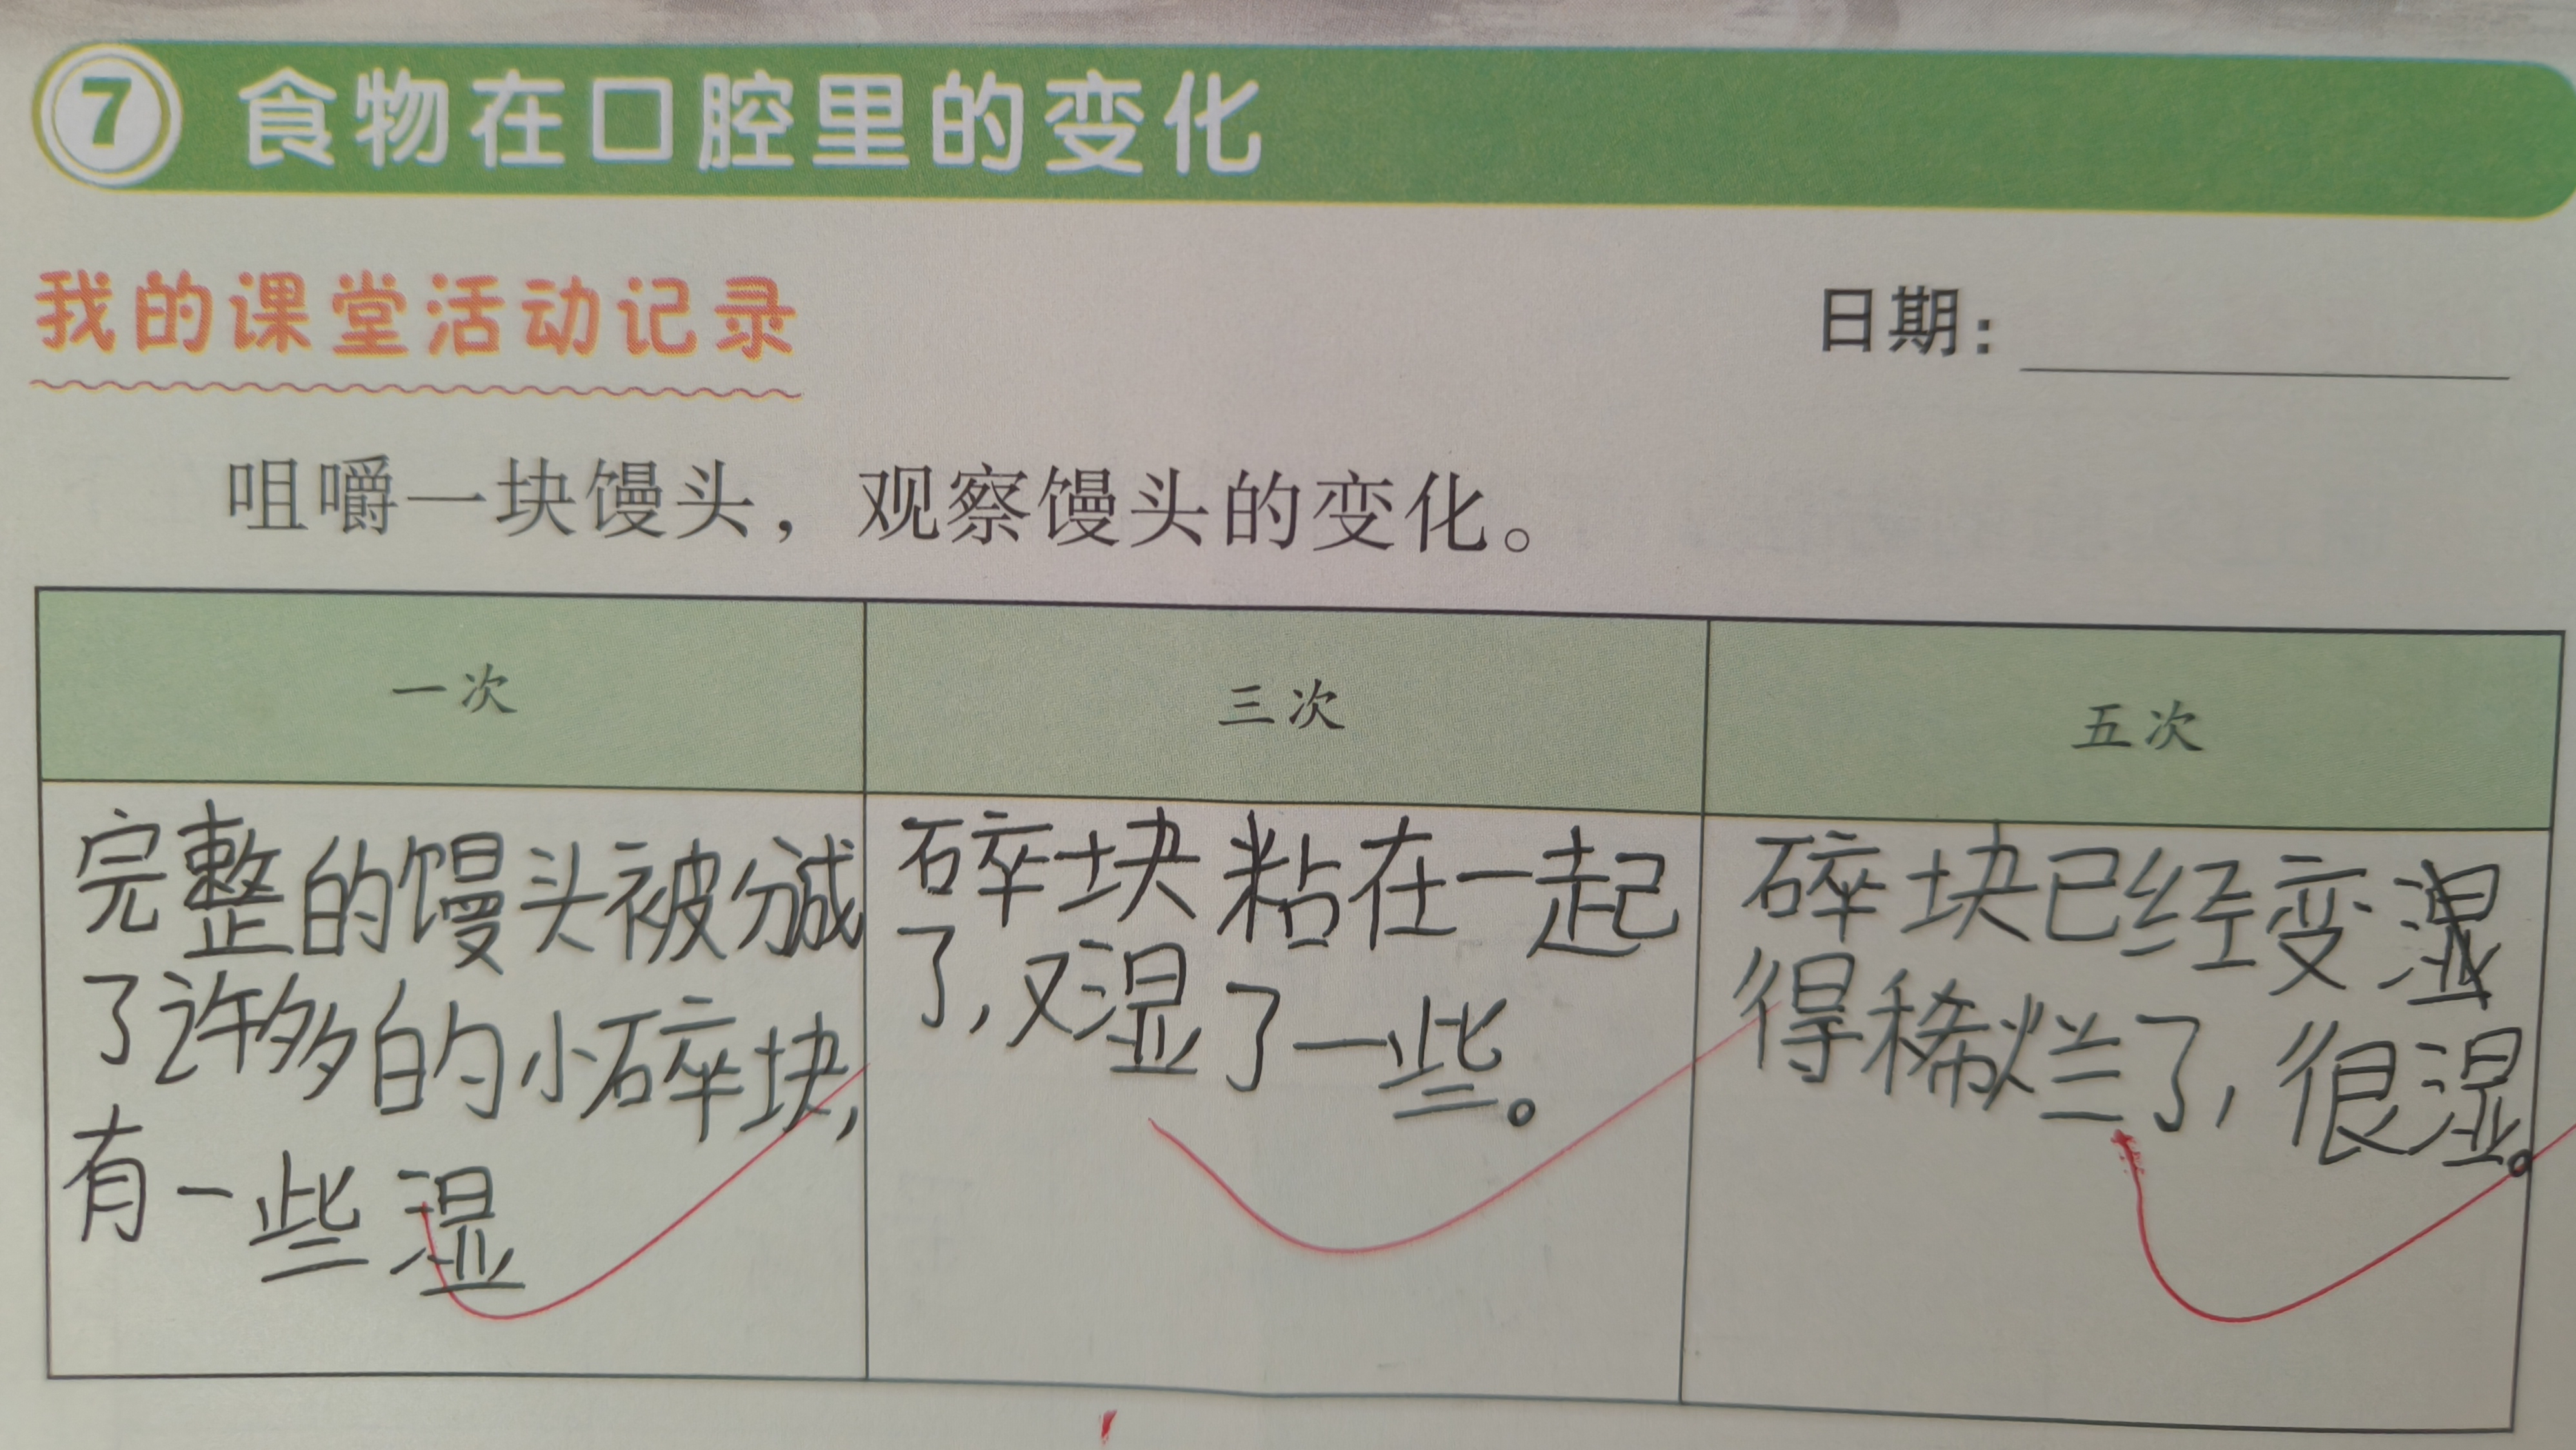 7 食物在口腔里的变化
我的课堂活动记录
日期：
咀嚼一块馒头，观察馒头的变化。
一次
三次
五次
完整的馒头被分
了许多的小碎块，
有一些湿
碎块粘在一起
了，又湿了一些。
碎块已经变
得稀烂了，很湿。